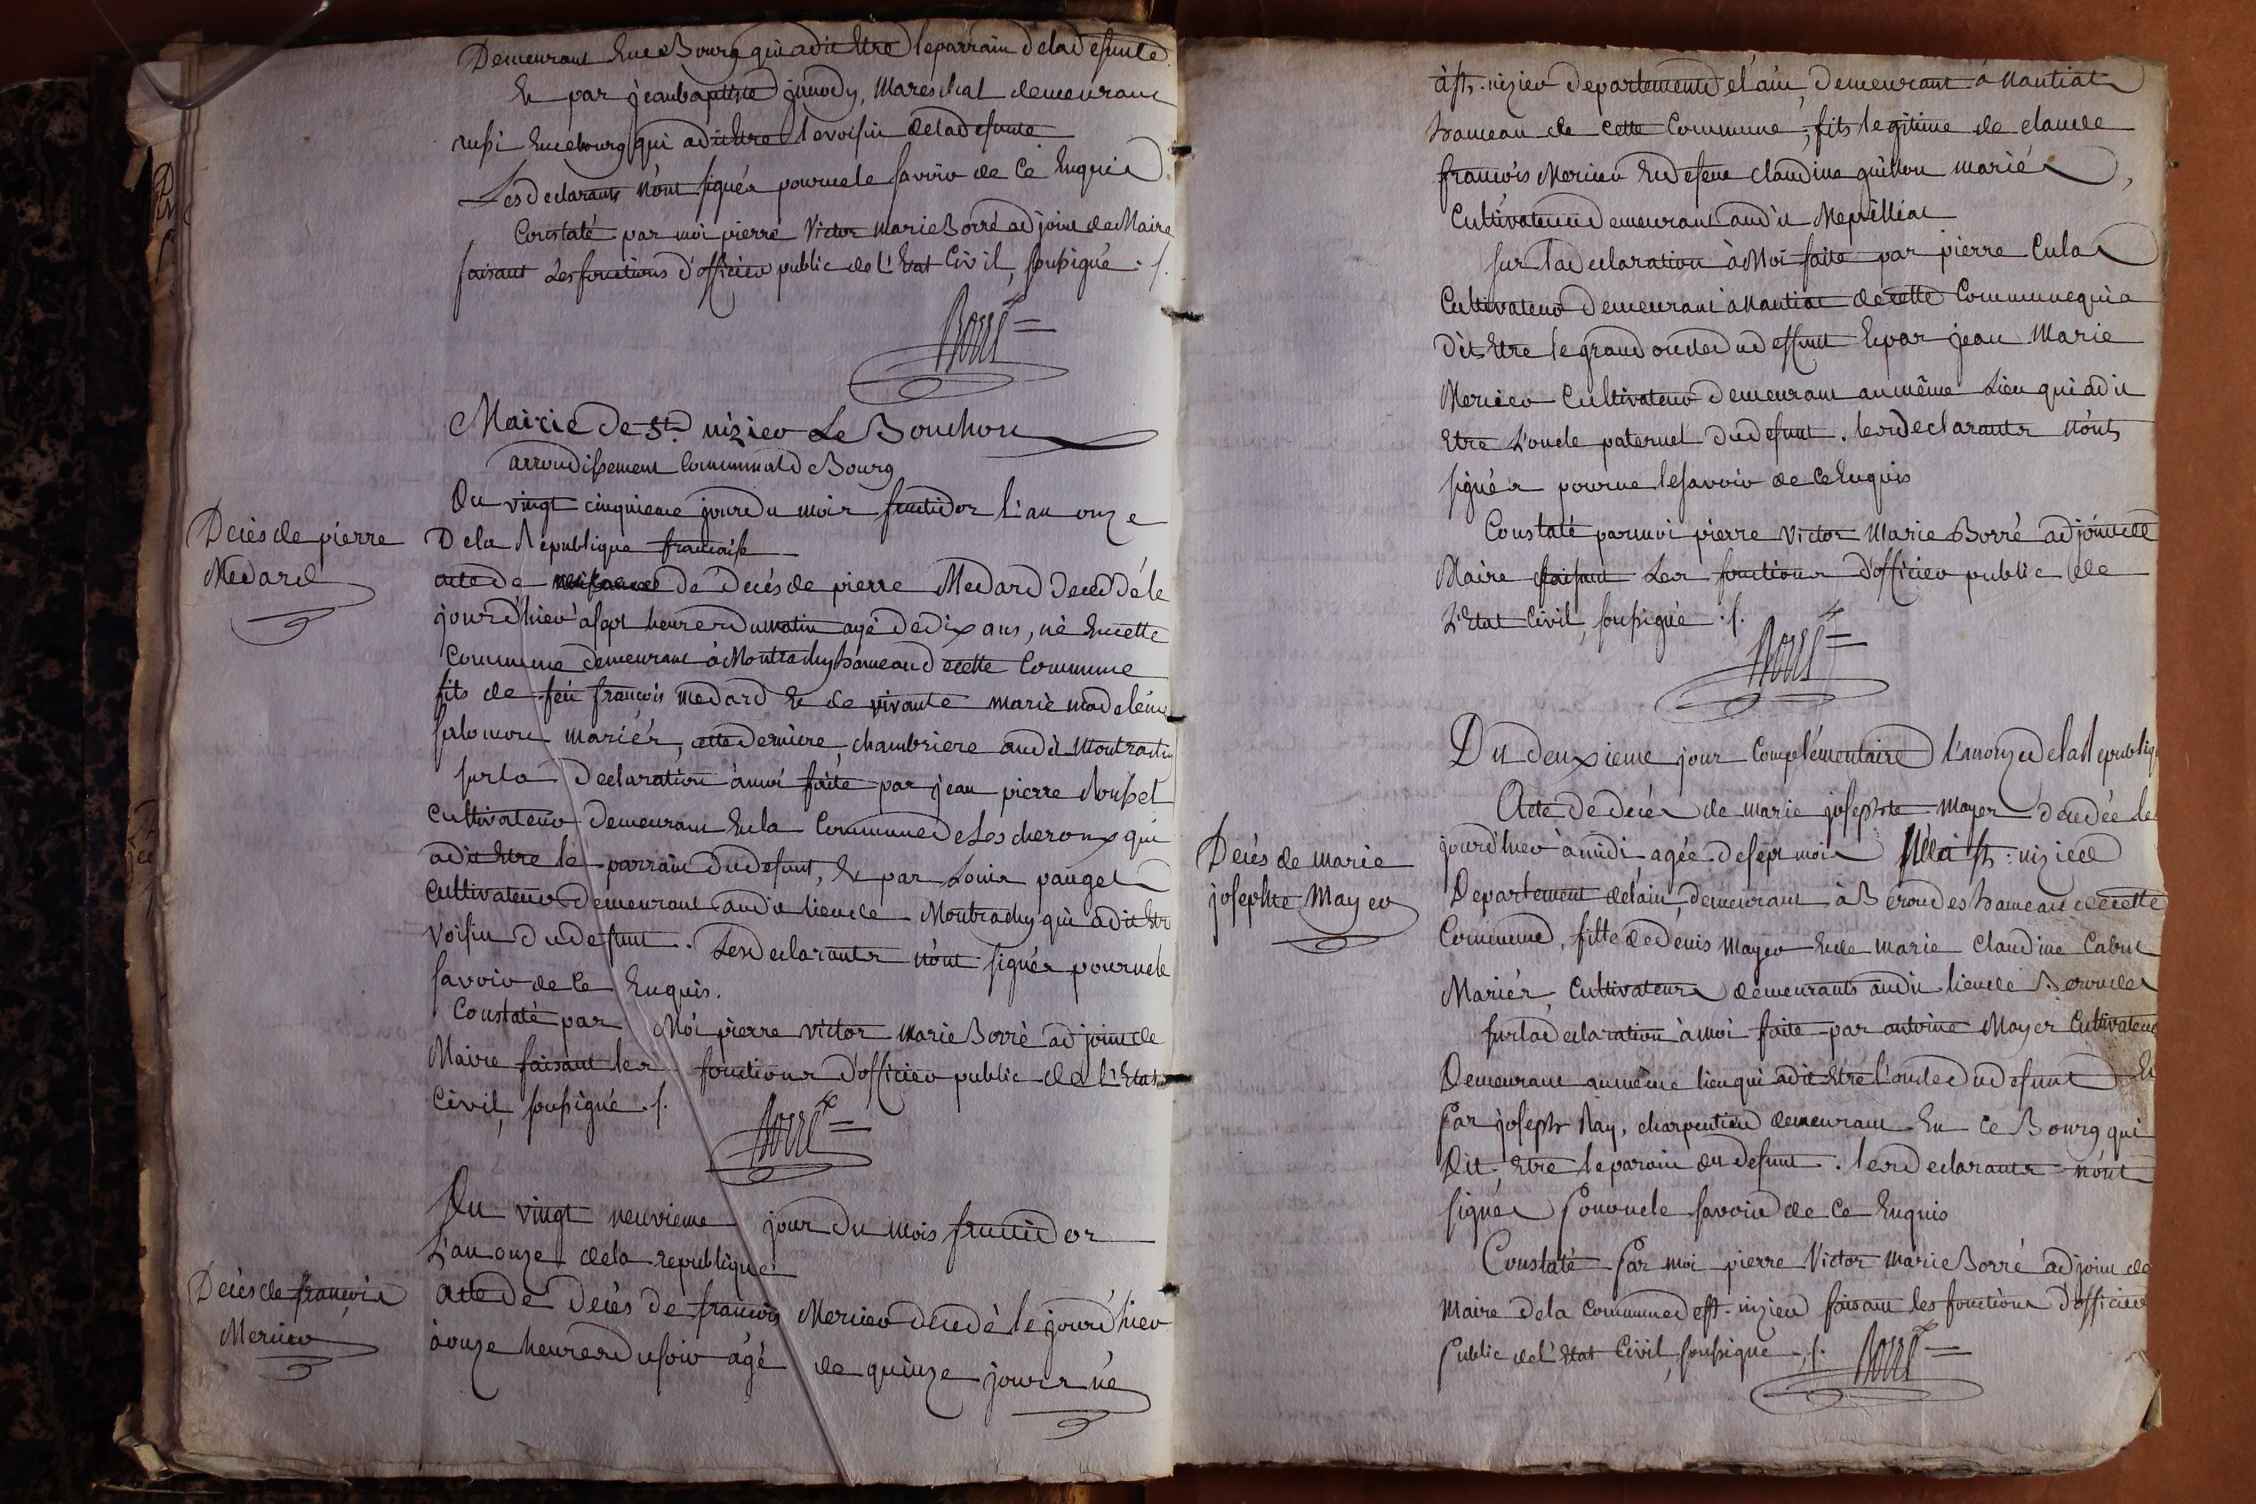 Demeurant En ce Bourg qui a dit Etre le parrain de la defunte.
Et par jean baptiste junody, Mareschal demeurant
aussi En ce bourg qui a dit Etre le voisin de la defunte
Les declarants n'ont signés pour ne le savoir de ce Enquis
Constaté par moi pierre Victor Marie Borré adjoint de Maire
faisant Les fonctions d'officier public de l'Etat Civil, soussigné ./.
Borré
Mairie de St. nizier Le Bouchou
arrondissement Communal de Bourg
Du vingt cinquieme jour du mois fructidor l'an onze
De la Republique francaise
Decès de pierre
Medard
acte de de Decès de pierre Medard Decedé le
jour d'hier a sept heures du matin agé de dix ans, né En cette
Commune demeurant à Montrachy hameau de cette Commune
fils de feu françois Medard Et de vivante marie madeleine
salomon mariés, cette derniere chambriere au dit Montrachy
sur la Declaration à moi faite par jean pierre Rousset
Cultivateur demeurant En la Commune de Lescheroux qui
a dit Etre le parrain du defunt, Et par Louis pauget
Cultivateur demeurant au dit lieu de Montrachy qui a dit Etre
Voisin du defunt. Les declarants n'ont signés pour ne le
savoir de ce Enquis.
Constaté par Moi pierre victor marie Borré adjoint de
Maire faisant les fonctions d'officier public de L'Etat
Civil, soussigné ./.
Borré
Du vingt neuvieme jour du mois fructidor
L'an onze de la republique
Decès de françois
Mercier
acte de Decès de françois Mercier decedé le jour d'hier
à onze heures du soir agé de quinze jours né
à st. nizier departement de l'ain, demeurant à Nantiat
hameau de cette Commune, fils legitime de claude
françois Mercier Et de feue claudine guillon mariés,
Cultivateur demeurant au dit Mepilliat
sur la declaration à Moi faite par pierre Culas
Cultivateur demeurant à Nantiat de cette Commune qui a
dit Etre le grand oncle du deffunt Et par jean Marie
Mercier Cultivateur demeurant au même Lieu qui a dit
Etre L'oncle paternel du defunt. les declarants n'ont
signés pour ne le savoir de ce Enquis
Constaté par moi pierre Victor Marie Borré adjoint de
Maire faisant Les fonctions d'officier public de
L'Etat Civil, soussigné ./.
Borré
Du deuxieme jour Complémentaire L'an onze de la Republiq
Decès de marie
josephte Mayer
Acte de decés de marie josephte Mayer decedée le
jour d'hier à midi, agée de sept mois Née à st: nizier
Departement de l'ain, demeurant à Beroudes hameau de cette
Commune, fille de denis Mayer Et de marie Claudine Cabut
Mariés Cultivateurs demeurants au dit lieu de Beroudes
sur la declaration à moi faite par antoine Mayer Cultivateur
Demeurant au même lieu qui a dit Etre l'oncle du defunt Et
Par joseph Ray, charpentier demeurant En ce Bourg qui
Dit Etre le parain du defunt. les declarants n'ont
signés Pour ne le savoir de Ce Enquis
Constaté Par moi pierre Victor marie Borré adjoint de
maire de la Commune de st. nizier faisant les fonctions d'officier
Public de l'Etat Civil, soussigné ./. Borré